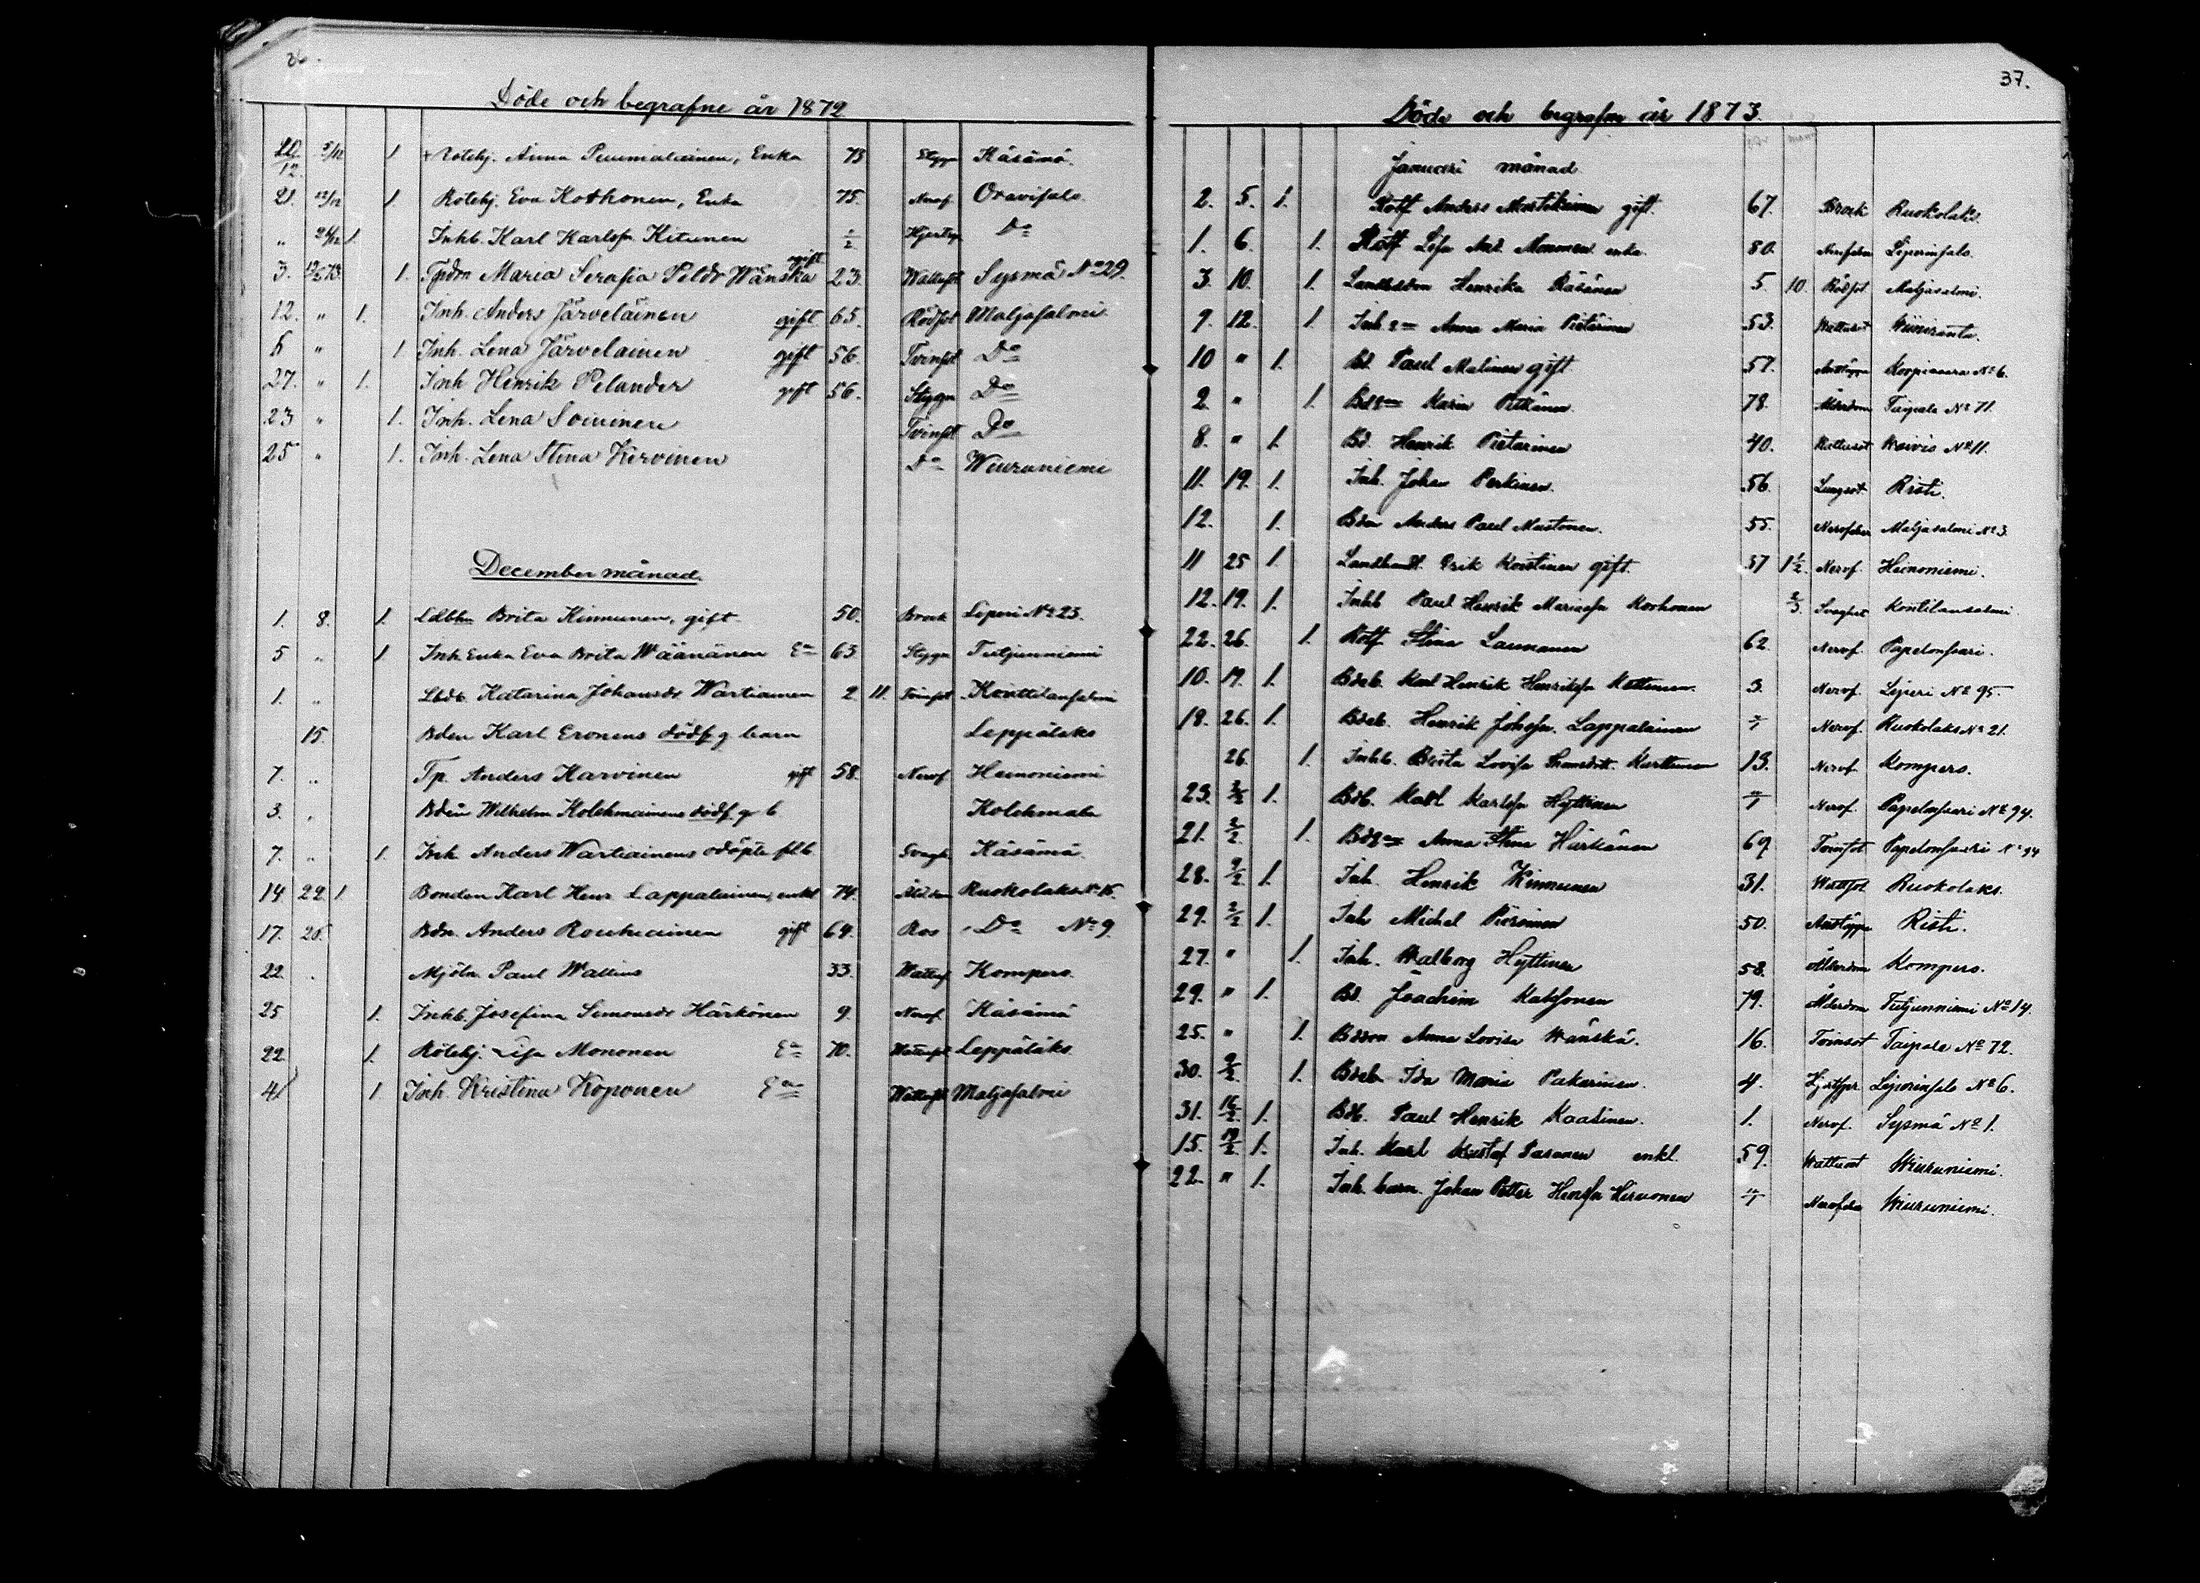 36.
Döde och begrafne år 1872
20/12 5/12 1 Rotehj. Anna Puumalainen, Enka 73 Styggn Käsämä.
21. 12/12 1 Rotehj. Eva Kothonen, Enka 75. Nerof. Oravisalo
„ 26/12 1. Inhb. Karl Karlsson Kitunen 1/2 D:o
3. 1. Maria Serafia Wänska gift 23 Wattusot Sysmä No 29.
12. „ 1. Inh. Anders Järveläinen gift 65. Rödsot Maljasalmi
5 „ 1 Inh. Lena Järvelainen gift 56. Tvinsot D:o
27. „ 1. Inh Henrik Pelander gift 56. Styggn D:o
23 „ 1. Inh. Lena Soininen Tvinsot D:o
25 „ 1. Inh. Lena Stina Kervinen D:o Wiuruniemi
December månad.
1. 8. 1. Brita Kinnunen, gift 50. Brock Liperi No 23.
5 „ 1 Inh Enka Eva Brita Wäänänen E:a 63 Styggn Tutjunniemi
1. „ Katarina Johansdr Wartiainen 2 11. Tvinsot Konttilansalmi
15. Bden Karl Eronens dödf. g barn Leppälaks
7. „ Tp. Anders Karvinen gift 58. Nerof Heinoniemi
3. „ Bden Wilhelm Kolehmainens dödf. g b Kolehmala
7. „ 1. Inh Anders Wartiainens odöpta flb Svagh. Käsämä
14 22. 1 Bonden Karl Henr Lappalainen, enkl 74. Ålderdom Ruokolaks No 15.
17. 25. Bdn. Anders Rouhiainen gift 64. Ros D:o No 9.
22 Mjöln Paul Wallius 33. Wattusot Kompero.
25 1. Inhb. Josefina Simonsdr Härkönen 9. Nerof. Käsämä
22 1. Rotehj. Lisa Mononen E:a 70. Wattusot Leppälaks
4 1. Inh. Kristina Koponen E:a Wattusot Maljasalmi
37.
Döde och begrafne år 1873.
Januari månad
2. 5. 1. Anders Martikainen gift. 67. Brock Ruokolaks
1. 6. 1. Lisa And. Mononen enka 80. Liperinsalo.
3. 10. 1. Henrika Räsänen 5. 10. Rödsot Maljasalmi.
9. 12. 1. Inh. Anna Maria Pietarinen 53. Wattusot Wiiniranta.
10 „ 1. Bd. Paul Malinen gift 57. Korpivaara No 6.
2. „ 1. Maria Pitkänen 78. Ålderdom Taipale No 71.
8. „ 1. Bd. Henrik Pietarinen 40. Wattusot No 11.
11. 19. 1. Inh. Johan Parkinen. 56. Lungsot Risti.
12. 1. Bden Anders Paul Mustonen. 55. Maljasalmi No 3.
11 25 1. Erik Koistinen gift. 37 1 1/2 Nerof. Heinoniemi.
12. 19. 1. Inhb Paul Henrik Mariasson Korhonen 2/3 Kontilansalmi
22. 26. 1. Stina Laukanen 62. Nerof. Papelonsaari.
10. 19. 1. Bdeb. Karl Henrik Henriksson 3. Nerof. Liperi No 95.
18. 26. 1. Bdeb. Henrik Johsson Lappalainen Nerof. Ruokolaks No 21.
26. 1. Inhb. Brita Lovisa Karttunen 13. Nerof Kompero.
23. 2/2 1. Bdb. Karl Karlsson Hyttinen Nerof. Papelonsaari No 94.
21. 2/2 1. Anna Stina Härkönen 69 Tvinsot Papelonsaari No 94
28. 9/2 1. Inh. Henrik Kinnunen 31. Wattsot Ruokolaks.
29. 2/2 1. Inh Michel Piironen 50. Risti.
27. „ 1. Inh. Walborg Hyttinen 58. Ålderdom Kompero.
29. „ 1. Bd. Joachim 79. Ålderdom Tutjunniemi No 14.
25. „ 1. Anna Lovisa Wänskä. 16. Tvinsot Taipale No 72.
30. 9/2 1. Bdeb Ida Maria Pakarinen. 4. Liperinsalo No 6.
31. 16/2 1. Bdb. Paul Henrik Kaasinen. 1. Nerof. Sysmä No 1.
15. 1. Inh. Karl Kustaf Paronen enkl. 59. Wattusot Wiuruniemi.
22. „ 1. Inh. barn. Johan Petter Hirvonen Wiuruniemi.